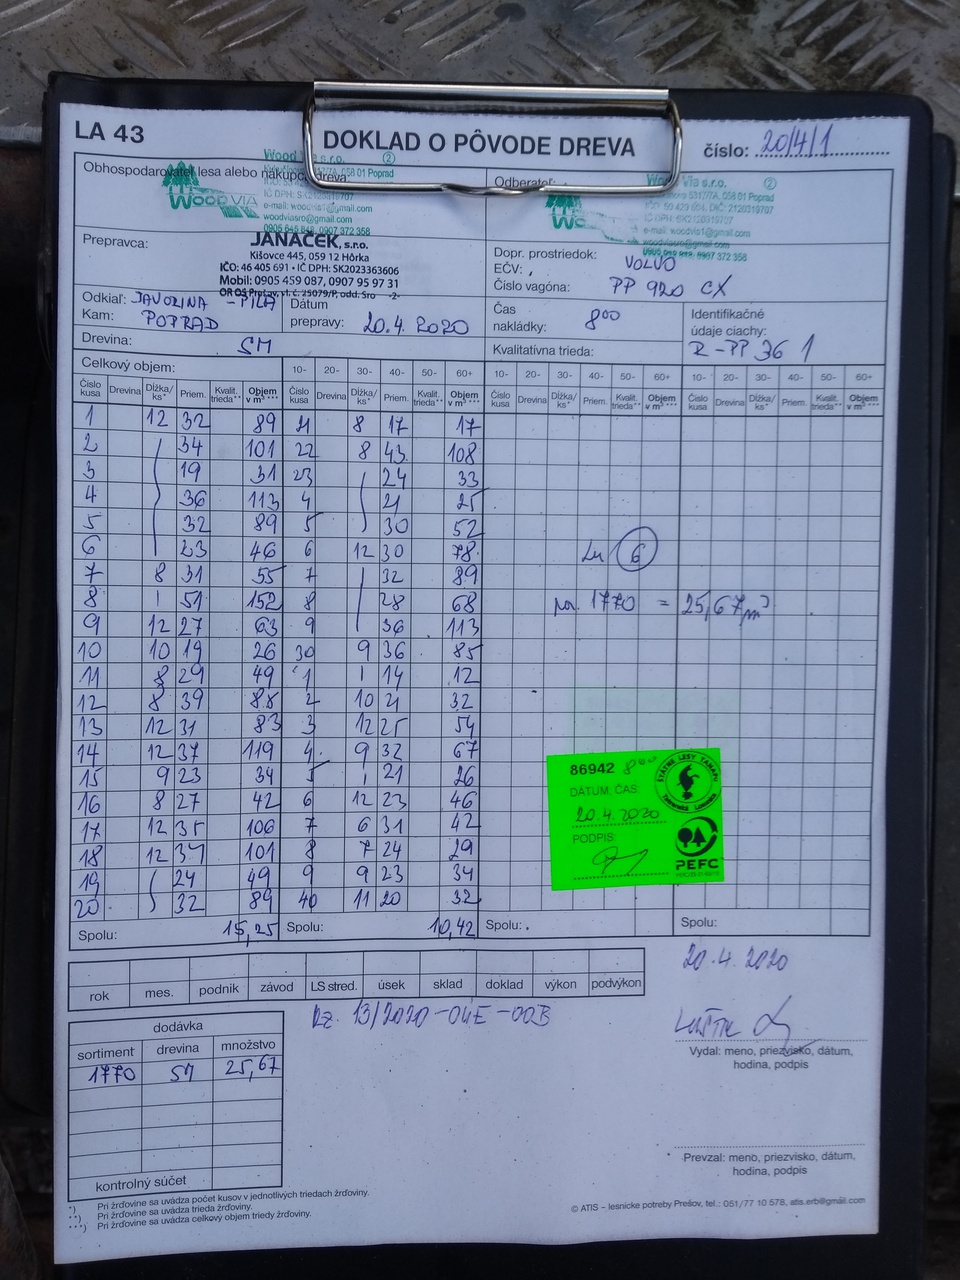 LA 43
DOKLAD O PÔVODE DREVA
číslo: 20/4/1
Obhospodarovateľ lesa alebo nákupca dreva:
Wood Via s.r.o. 2
058 01 Poprad
WOOD VIA
e-mail: woodvia1@gmail.com
woodviasro@gmail.com
0905 646 848, 0907 372 358
Odberateľ:
Wood Via s.r.o. 2
058 01 Poprad
e-mail: woodvia1@gmail.com
woodviasro@gmail.com
0907 372 358
Prepravca:
JANÁČEK, s.r.o.
Kišovce 445, 059 12 Hôrka
IČO: 46 405 691 • IČ DPH: SK2023363606
Mobil: 0905 459 087, 0907 95 97 31
OR OS Prešov, vl. č. 25079/P, odd. Sro -2-
Dopr. prostriedok: VOLVO
EČV:
Číslo vagóna: PP 920 CX
Odkiaľ: JAVORINA - PÍLA
Kam: POPRAD
Dátum prepravy: 20.4.2020
Čas nakládky: 8 00
Identifikačné údaje ciachy: R-PP 36 1
Drevina: SM
Kvalitatívna trieda:
Celkový objem: 10- 20- 30- 40- 50- 60+ 10- 20- 30- 40- 50- 60+ 10- 20- 30- 40- 50- 60+
Číslo kusa Drevina Dĺžka/ks* Priem. Kvalit. trieda** Objem v m³ *** Číslo kusa Drevina Dĺžka/ks* Priem. Kvalit. trieda** Objem v m³ *** Číslo kusa Drevina Dĺžka/ks* Priem. Kvalit. trieda** Objem v m³ *** Číslo kusa Drevina Dĺžka/ks* Priem. Kvalit. trieda** Objem v m³ ***
1 12 32 89 21 8 17 17
2 34 101 22 8 43 108
3 19 31 23 24 33
4 36 113 4 21 25
5 32 89 5 30 52
6 23 46 6 12 30 78
7 8 31 55 7 32 89
8 51 152 8 28 68
9 12 27 63 9 36 113
10 10 19 26 30 9 36 85
11 8 29 49 1 14 12
12 8 39 88 2 10 21 32
13 12 31 83 3 12 25 54
14 12 37 119 4 9 32 67
15 9 23 34 5 21 26
16 8 27 42 6 12 23 46
17 12 35 106 7 6 31 42
18 12 34 101 8 7 24 29
19 24 49 9 9 23 34
20 32 89 40 11 20 32
Spolu: 15,25 Spolu: 10,42 Spolu: Spolu:
6
1770 = 25,67 m³
86942 8 00
DÁTUM, ČAS:
20.4.2020
PODPIS:
ŠTÁTNE LESY TANAPu
Tatranská Lomnica
PEFC
rok mes. podnik závod LS stred. úsek sklad doklad výkon podvýkon
20.4.2020
13/2020-04E-00B
dodávka
sortiment drevina množstvo
1770 SM 25,67
kontrolný súčet
Vydal: meno, priezvisko, dátum,
hodina, podpis
Prevzal: meno, priezvisko, dátum,
hodina, podpis
*) Pri žrďovine sa uvádza počet kusov v jednotlivých triedach žrďoviny.
**) Pri žrďovine sa uvádza trieda žrďoviny.
***) Pri žrďovine sa uvádza celkový objem triedy žrďoviny.
© ATIS – lesnícke potreby Prešov, tel.: 051/77 10 578, atis.erb@gmail.com